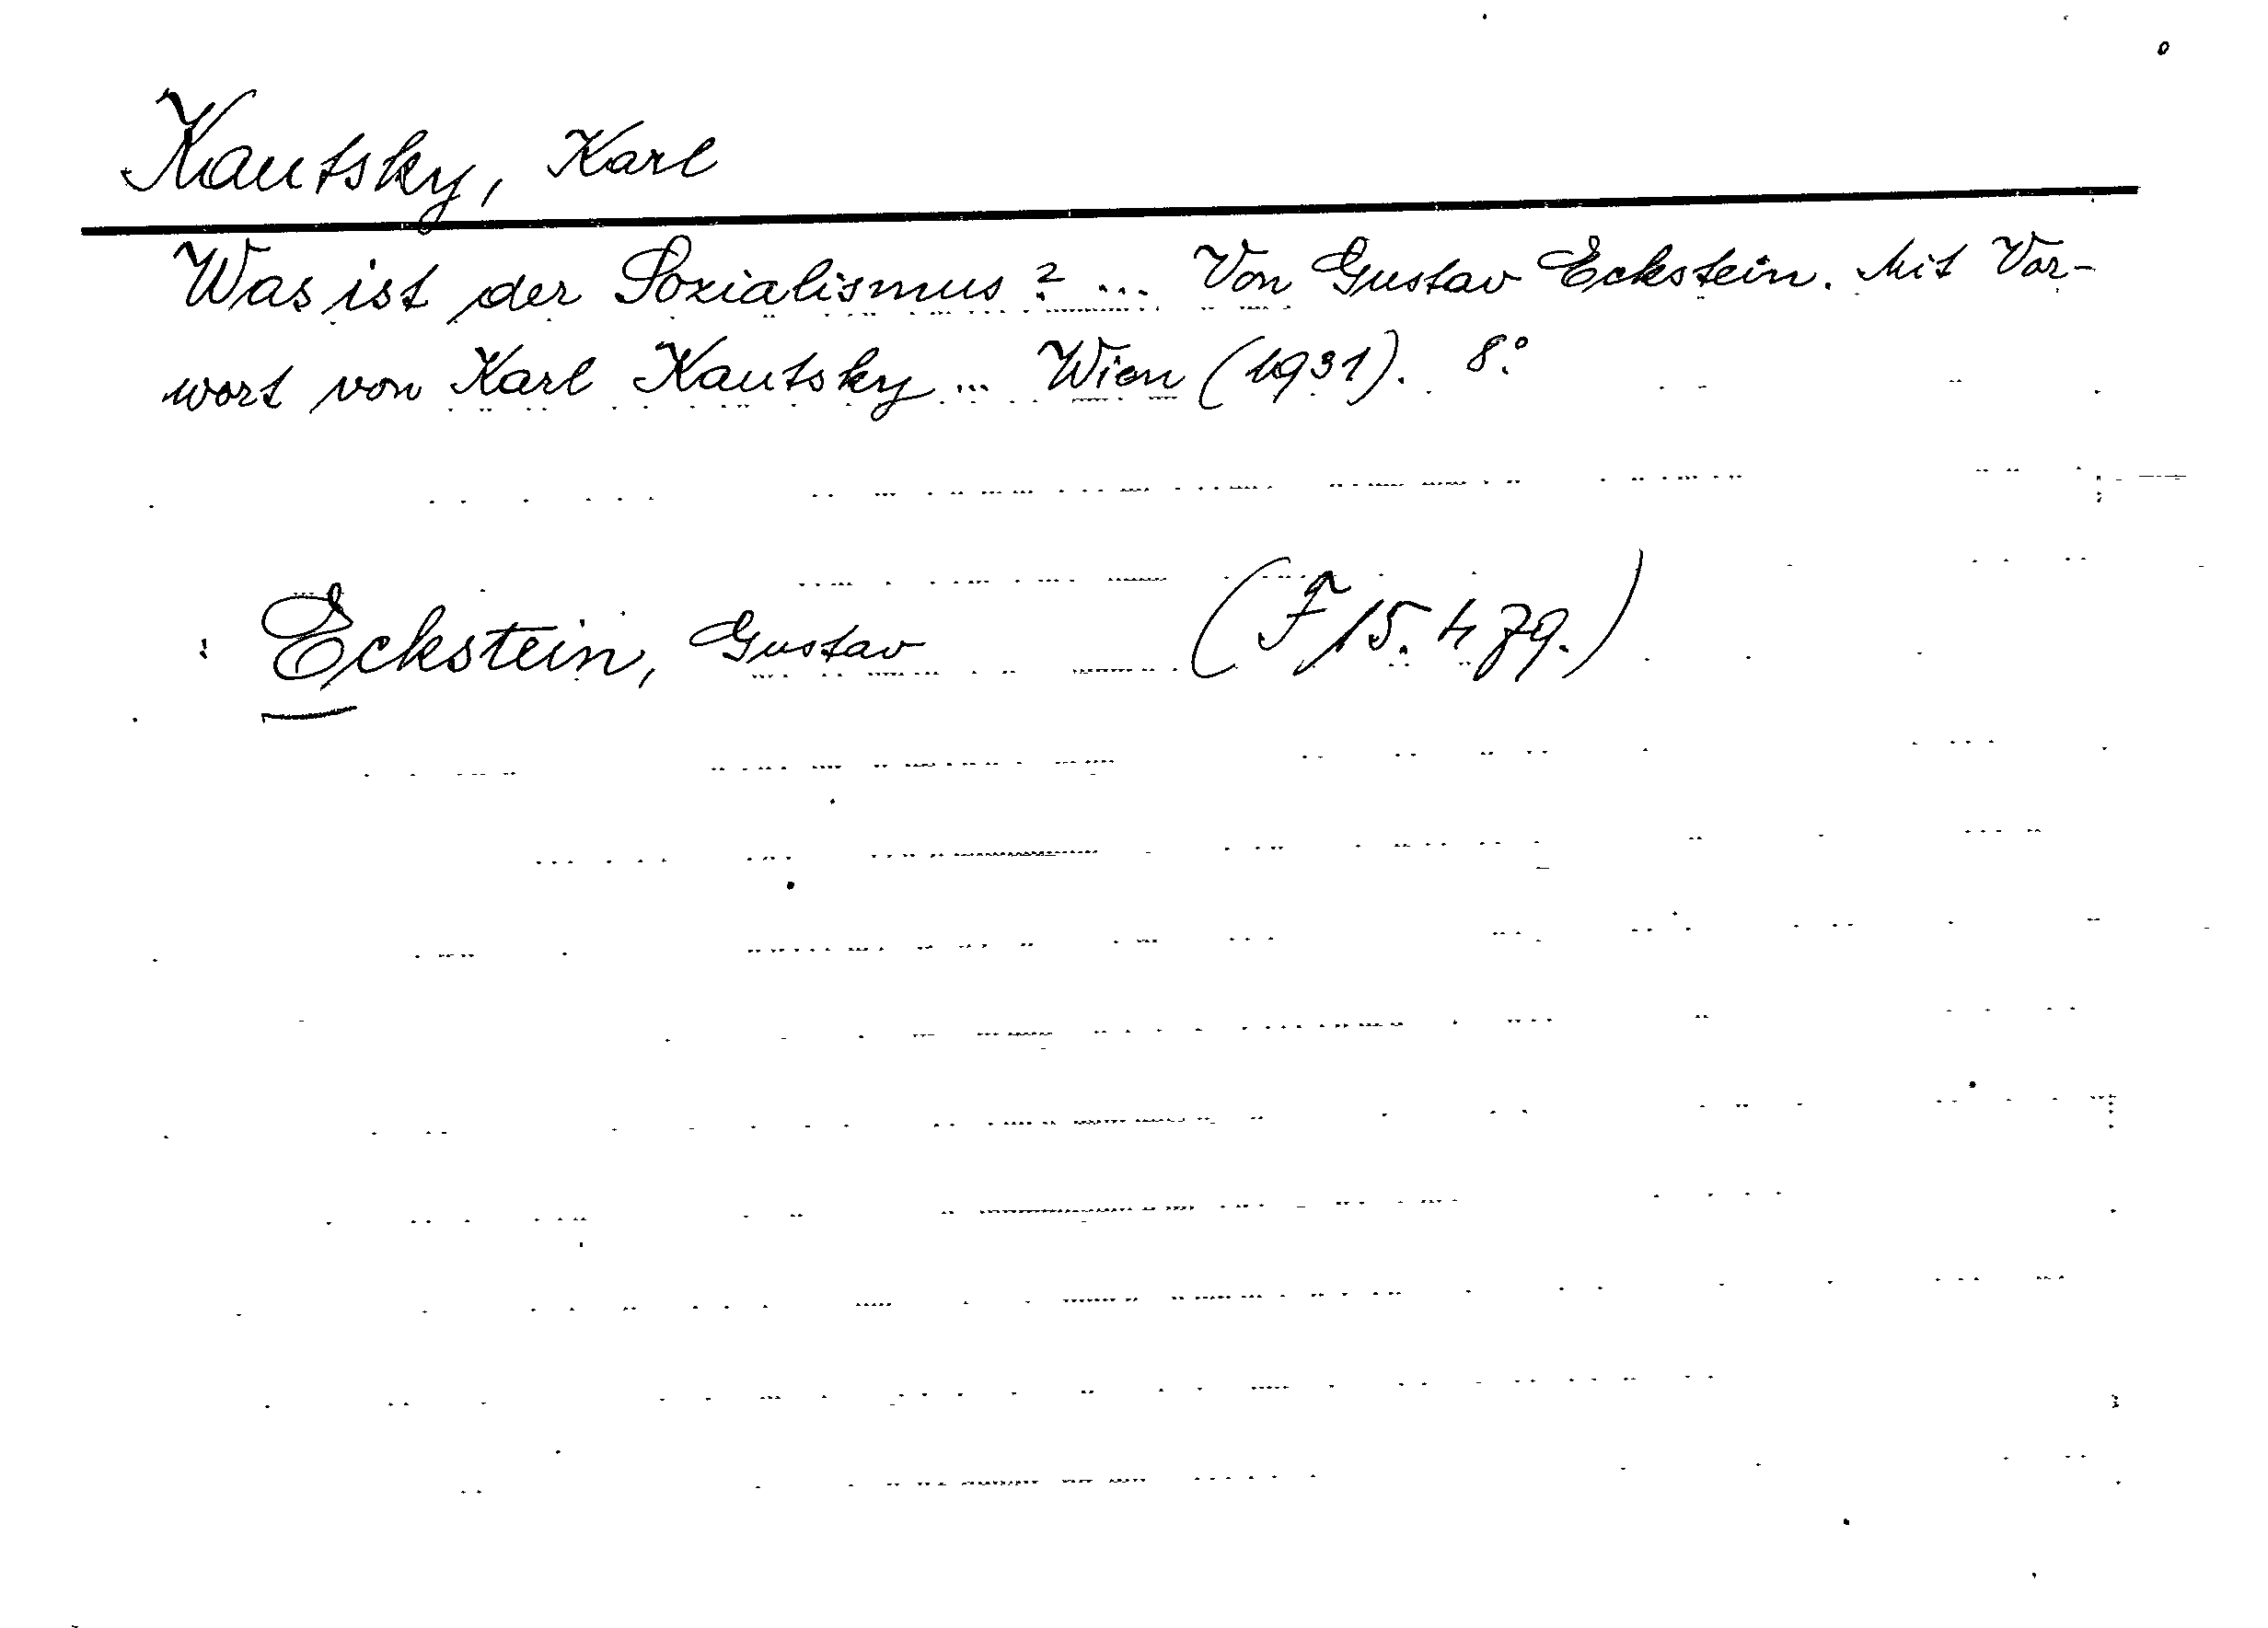 Kautsky, Karl
Was ist der Sozialismus? ... Von Gustav Eckstein. Mit Vor-
wort von Karl Kautsky ... Wien (1931). 8°.
Eckstein, Gustav (F 15.479.)